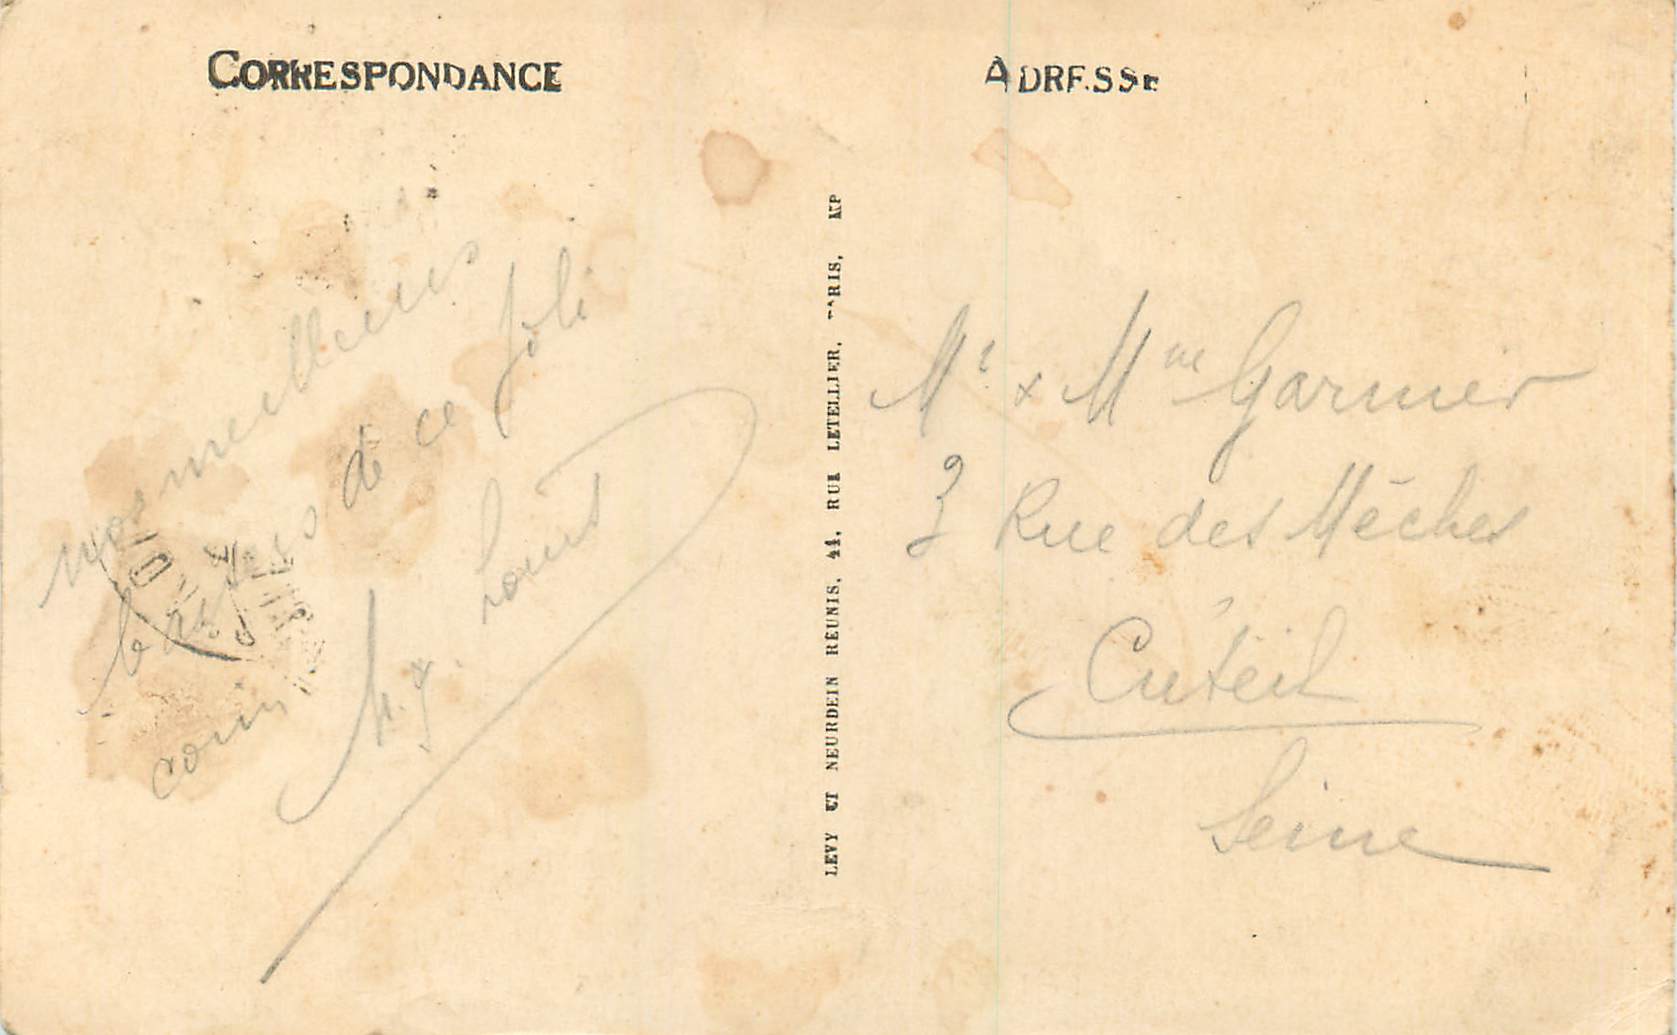 CORRESPONDANCE
nos meilleurs
baisers de ce joli
coin
Louis
ADRESSE
LEVY ET NEURDEIN RÉUNIS, 44, RUE LETELLIER, PARIS, IMP
Mr & Mme Garnier
3 Rue des Mèches
Créteil
Seine